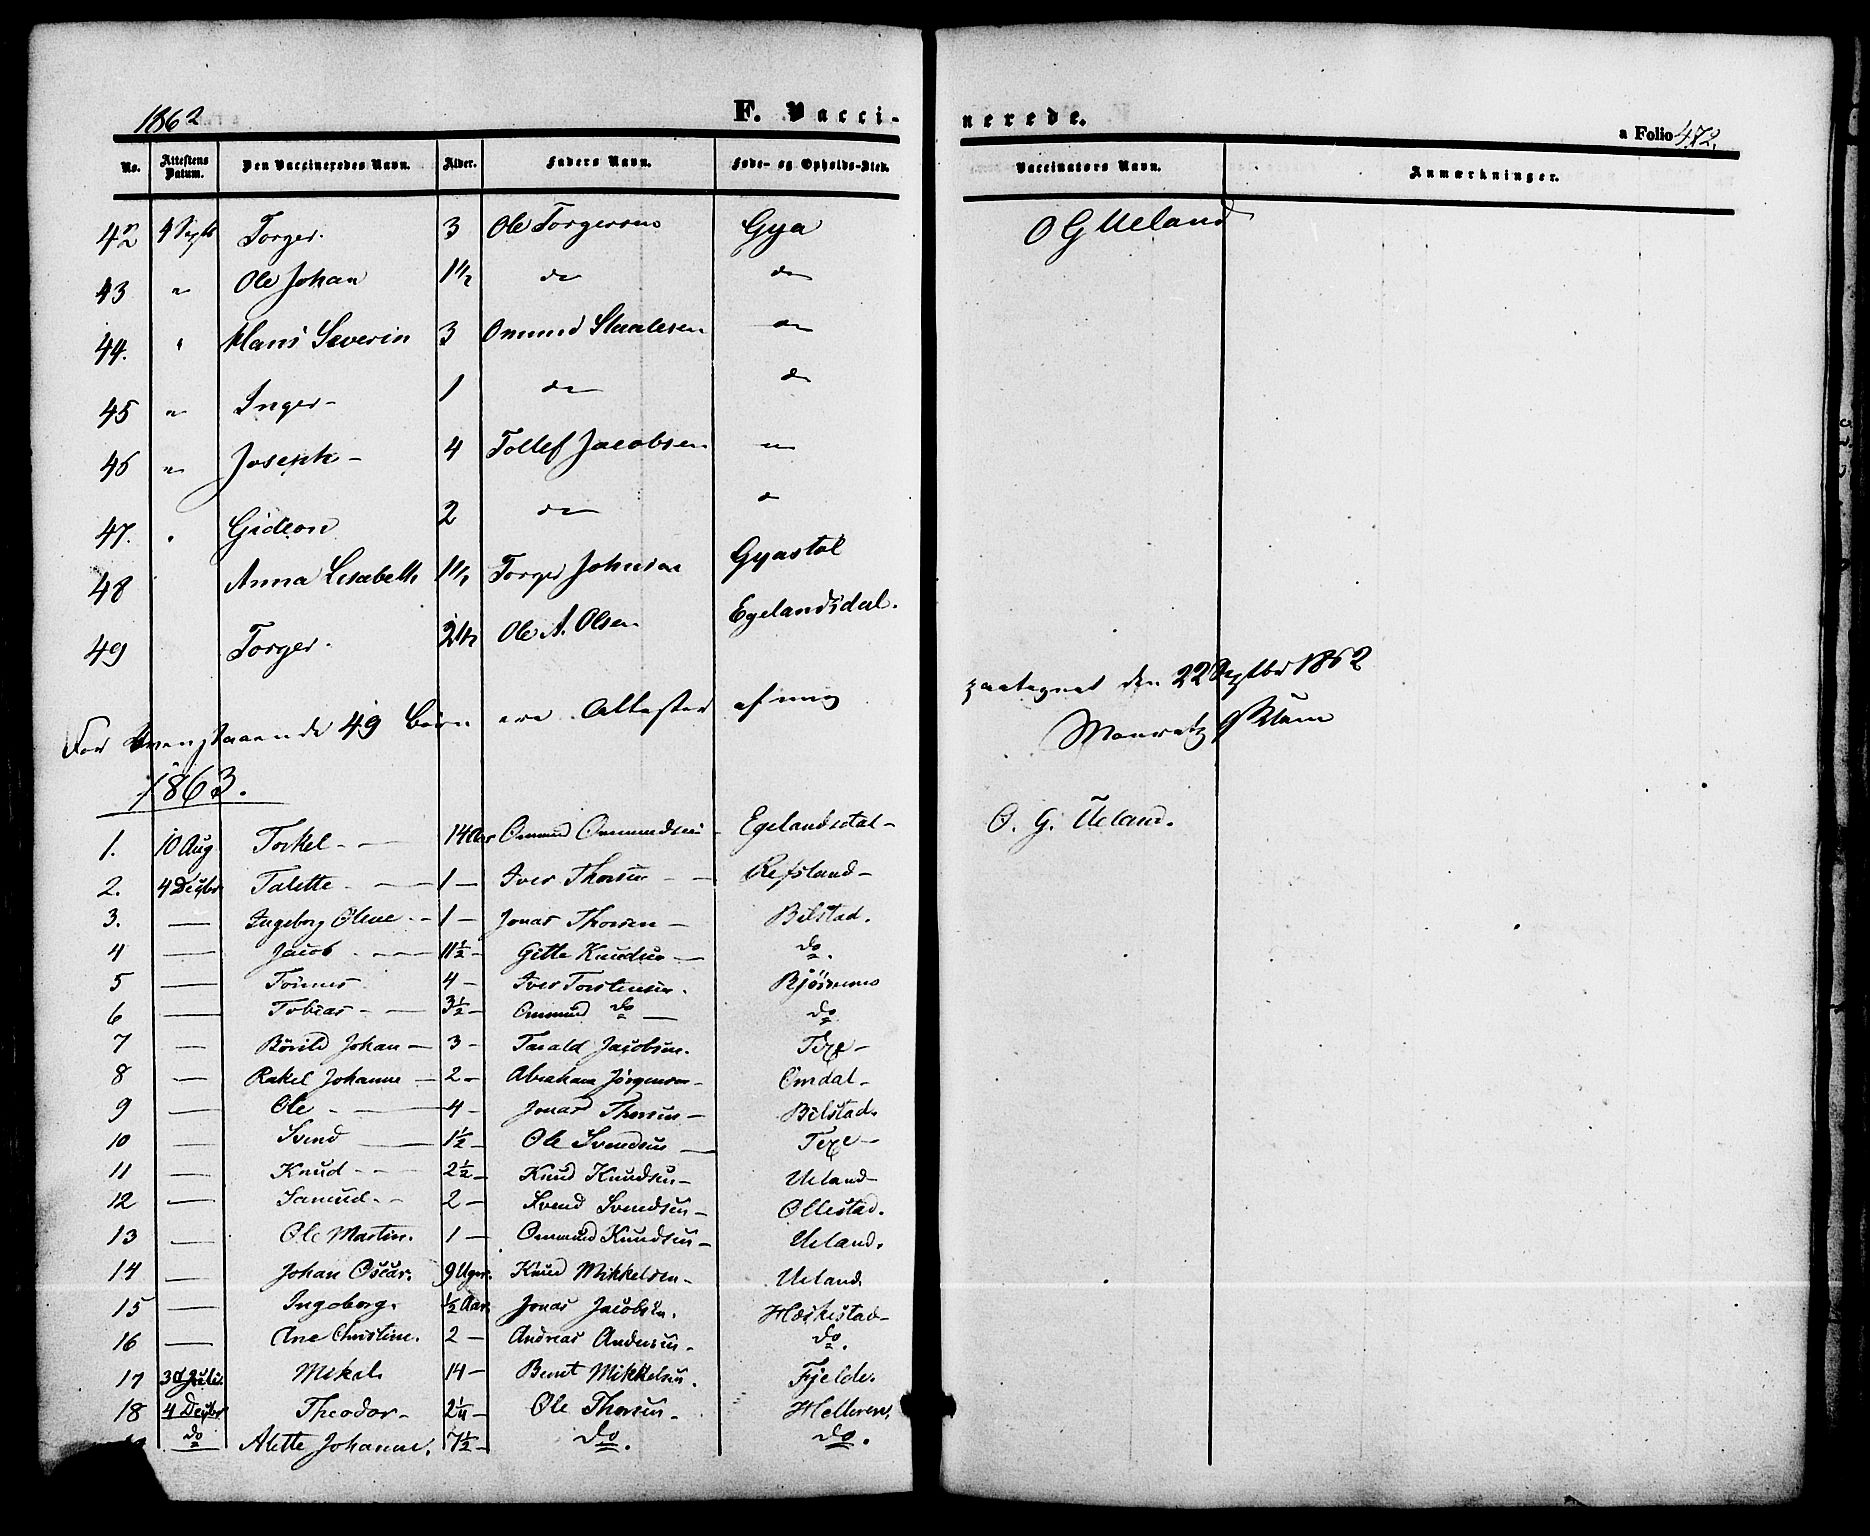 1862 F. Vacci- nerede. a Folio 472.
No. Attestens Datum. Den Vaccineredes Navn. Alder. Faders Navn. Føde- og Opholds-Sted. Vaccinators Navn. Anmærkninger.
42 4 Septb Torger. 3 Ole Torgersen Gya O G Ueland
43 " Ole Johan 1 1/2 do do
44. " Hans Severin 3 Omund Staalesen do
45 " Inger- 1 do do
46 " Joseph- 4 Tollef Jacobsen "
47. " Gideon 2 do do
48 Anna Lisabeth 1 1/2 Torger Johnsen Gyastøl
49 Torger. 2 1/2 Ole A. Olsen Egelandsdal.
For ovenstaaende 49 Børn ere Attester af mig paategnet den 22 Septbr 1862
Mauritz Blum
1863.
1. 10 Aug Torkel - 14 Aar Omund Ommundsen - Egelandsdal - O. G. Ueland.
2. 4 Decbr Talette - 1 - Iver Thorsen - Refsland -
3. — Ingeborg Oline - 1 - Jonas Thorsen - Bilstad.
4 — Jacob - 11 1/2 - Gitte Knudsen - do.
5 — Tønnes 4 - Iver Torstensen. Bjørnemo
6 — Tobias - 3 1/2 - Ommund do — do
7 — Børild Johan - 3 - Tarald Jacobsen. Texe -
8 — Rakel Johanne - 2 - Abraham Jørgensen - Omdal -
9 — Ole - 4 - Jonas Thorsen - Bilstad.
10 — Svend — 1 1/2 - Ole Svendsen — Texe -
11 — Knud - 2 1/2 - Knud Knudsen - Ueland -
12 — Samuel - 2 - Svend Svendsen - Ollestad.
13 — Ole Martin. 1 - Ommund Knudsen - Ueland.
14 — Johan Oscar. 9 Uger. Knud Mikkelsen - Ueland.
15 — Ingeborg. 1/2 Aar. Jonas Jacobsen. Hæskestad -
16 — Ane Christine. 2 - Andreas Andersen - do.
17 30 Juli. Mikal 14 - Bernt Mikkelsen. Fjelde.
18 4 Decbr Theodor - 2 1/4 - Ole Thorsen - Helleren.
do Alette Johanne. 7 1/2 - do. do.